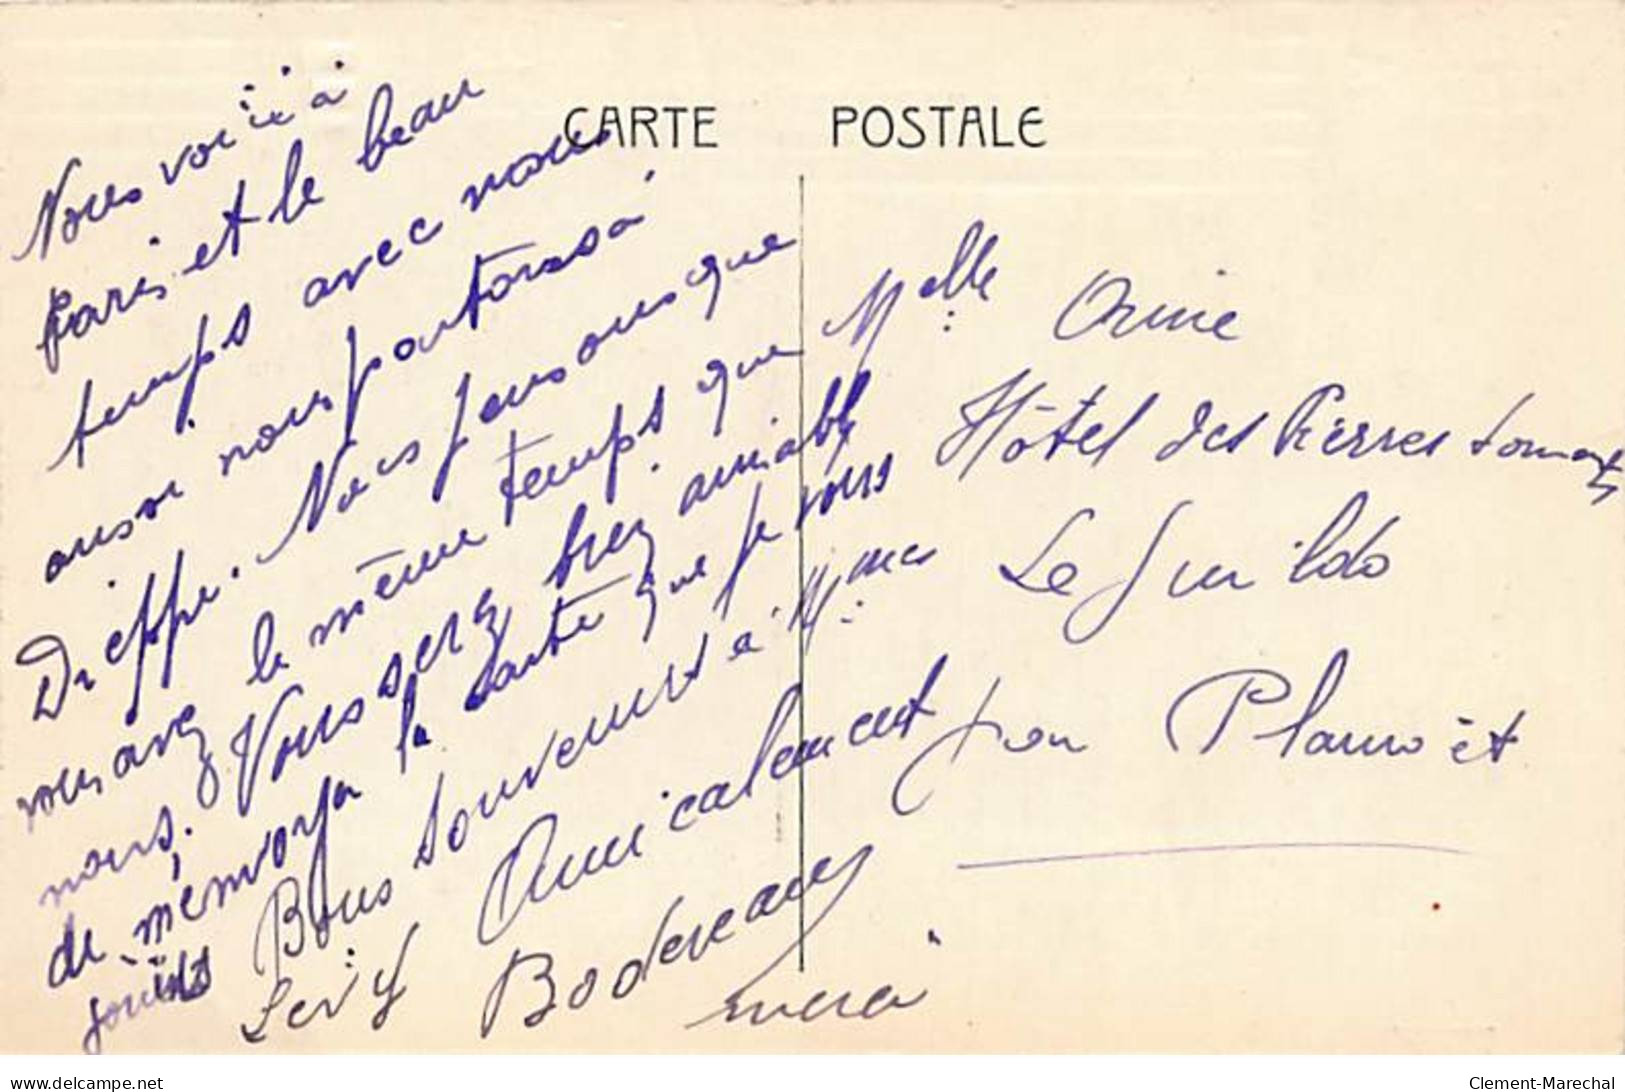 CARTE POSTALE
Nous voici à
Paris et le beau
temps avec nous
aussi nous partons à
Dieppe. Nous pensons que
vous avez le même temps que
nous. Vous serez très aimable
de m'envoyer la carte que je vous
joins Bons souvenirs à Mmes
Levy Amicalement
Bodereau
merci
Melle
Hôtel des Pierres Sonnantes
Le Guildo
par Plancoët
www.delcampe.net
Clement-Marechal